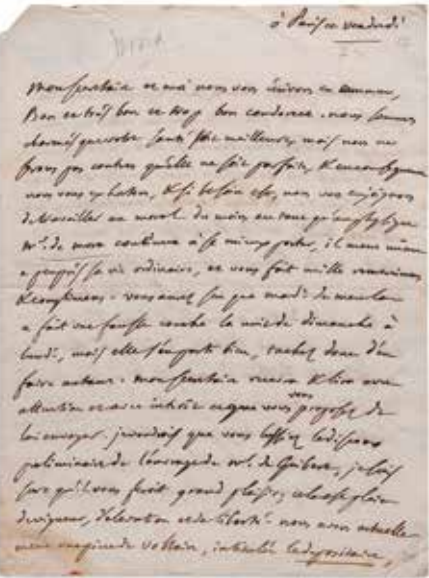 à Paris ce vendredi
mon secretaire et moi nous vous écrivons en commun,
Bon et très bon et trop bon condorcet. nous sommes
charmés que votre santé soit meilleure, mais nous ne
serons pas contens qu'elle ne soit parfaite,
nous vous exhortons, & si besoin est, nous vous enjoignons
de travailler au moral du moins autant qu'au physique
mr. de mora continue à se mieux porter, il mene même
à peu près sa vie ordinaire, et vous fait mille remercimens
& complimens. vous aurez su que made. de meulan
a fait une fausse couche la nuit de dimanche à
lundi, mais elle s'en porte bien, tachez donc d'en
faire autant. mon secretaire recevra & lira avec
attention et avec intérêt ce que vous vous proposez de
lui envoyer. je voudrois que vous lussiez le discours
preliminaire de l'ouvrage de mr. de Guibert, je suis
sure qu'il vous feroit grand plaisir, cela est plein
de vigueur, d'élevation et de liberté. nous avons actuelle
ment une piece de voltaire, intitulée le depositaire,